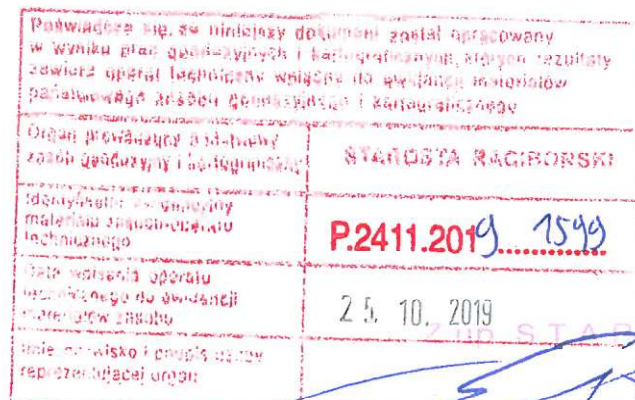 Poświadcza się, że niniejszy dokument został opracowany
w wyniku prac geodezyjnych i kartograficznych, których rezultaty
zawiera operat techniczny wpisany do ewidencji materiałów
państwowego zasobu geodezyjnego i kartograficznego
Organ prowadzący państwowy
zasób geodezyjny i kartograficzny
STAROSTA RACIBORSKI
Identyfikator ewidencyjny
materiału zasobu-operatu
technicznego
P.2411.2019 1599
Data wpisania operatu
technicznego do ewidencji
materiałów zasobu
25. 10. 2019
Z up. STAR
Imię, nazwisko i podpis osoby
reprezentującej organ